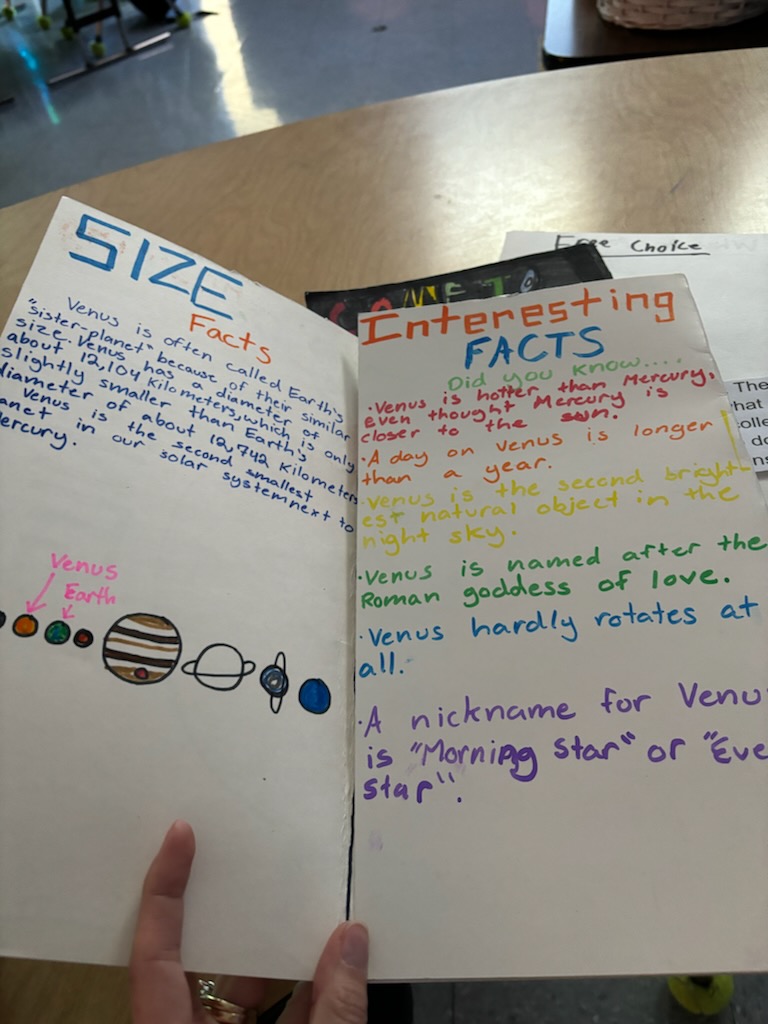 SIZE
Facts
Venus is often called Earth's
"sister-planet" because of their similar
size. Venus has a diameter of
about 12,104 Kilometers, which is only
slightly smaller than Earth's
diameter of about 12,742 Kilometers
Venus is the second smallest
anet in our solar system next to
ercury.
Venus
Earth
Free Choice
COMET
Interesting
FACTS
Did you know....
·Venus is hotter than Mercury,
even thought Mercury is
closer to the sun.
·A day on venus is longer
than a year.
·Venus is the second bright-
est natural object in the
night sky.
·Venus is named after the
Roman goddess of love.
·Venus hardly rotates at
all.
·A nickname for Venu
is "Morning Star" or "Eve
star".
The
hat
olle
do
ns